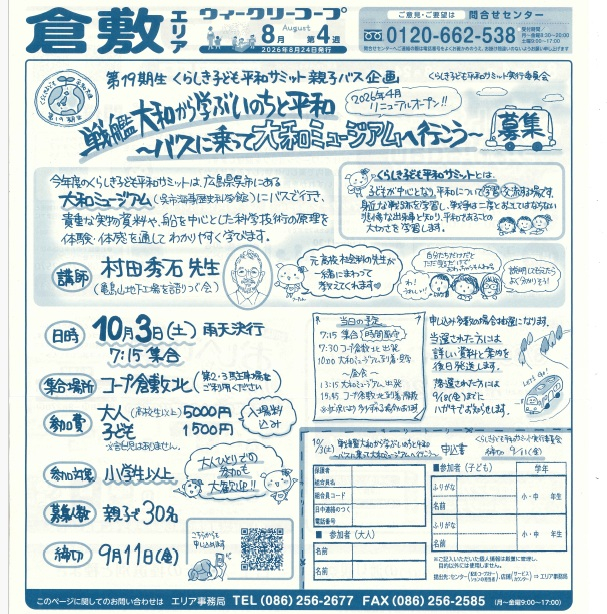 倉敷エリア
ウィークリーコープ
August
8月 第4週
2026年8月24日発行
ご意見・ご要望は 問合せセンター
0120-662-538
受付時間
月~金曜8:30~20:00
土曜9:00~17:00
第19期生 くらしき子ども平和サミット 親子バス企画
くらしき子ども平和サミット実行委員会
戦艦大和から学ぶいのちと平和
2026年4月
リニューアルオープン!!
~バスに乗って大和ミュージアムへ行こう~
募集
今年度のくらしき子ども平和サミットは、広島県呉市にある
大和ミュージアム(呉市海事歴史科学館)にバスで行き、
貴重な実物資料や、船を中心とした科学技術の原理を
体験・体感を通してわかりやすく学びます。
くらしき子ども平和サミットとは、
子どもが中心となり、平和について学習・交流する場です。
身近な戦跡を学習し、戦争は二度とおこしてはならない
悲惨な出来事と知り、平和であることの
大切さを学習します。
講師
村田秀石先生
(亀島山地下工場を語りつぐ会)
元高校社会科の先生が
一緒にまわって
教えてくれます
自分たちだけだと
わ!
説明してもらうと
よく分かりそう!
日時 10月3日(土) 雨天決行
7:15 集合
集合場所 コープ倉敷北(第2・3駐車場をご利用ください)
参加費 大人(高校生以上) 5000円
子ども 1500円
入場料込み
参加対象 小学生以上
大人ひとりでの
参加も
大歓迎!!
募集人数 親子で30名
締切 9月11日(金)
こちらからも
申し込めます
当日の予定
7:15 集合(時間厳守)
7:30 コープ倉敷北出発
10:00 大和ミュージアム到着・見学
~昼食~
13:15 大和ミュージアム出発
15:45 コープ倉敷北到着・解散
申し込み多数の場合は抽選になります。
当選された方には
詳しい資料と集めを
後日発送します。
落選された方には
9/18(金)までに
ハガキでお知らせします。
Let's Go!
10/3(土) 戦艦大和から学ぶいのちと平和
~バスに乗って大和ミュージアムへ行こう~
申込書
くらしき子ども平和サミット実行委員会
締切 9/11(金)
保護者
組合員名
組合員コード
日中連絡のつく
電話番号
■参加者(大人)
名前
名前
■参加者(子ども)
学年
ふりがな
名前
小・中 年生
ふりがな
名前
小・中 年生
※ご記入いただいた個人情報は厳重に管理し、
目的以外には使用しません。
このページに関してのお問い合わせは エリア事務局 TEL(086)256-2677 FAX(086)256-2585 (月~金曜9:00~17:00)